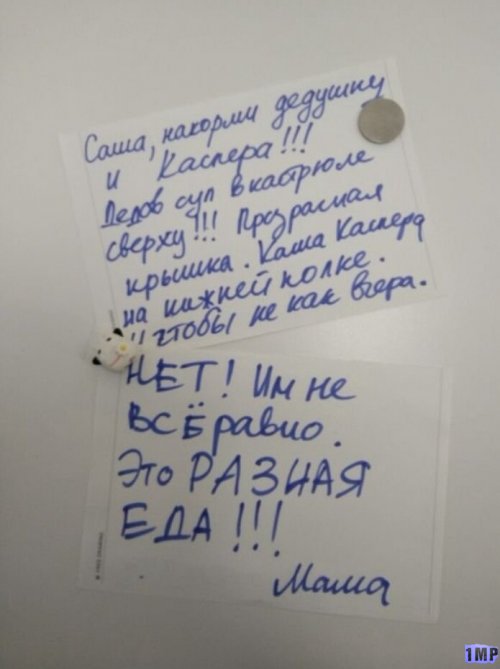 Саша, накорми дедушку
и Каспера!!!
Дедов суп в кастрюле
сверху!!! Прозрачная
крышка. Каша Каспера
на нижней полке.
И чтобы не как вчера.
НЕТ! Им не
ВСЁ равно.
Это РАЗНАЯ
ЕДА!!!
Мама
1MP